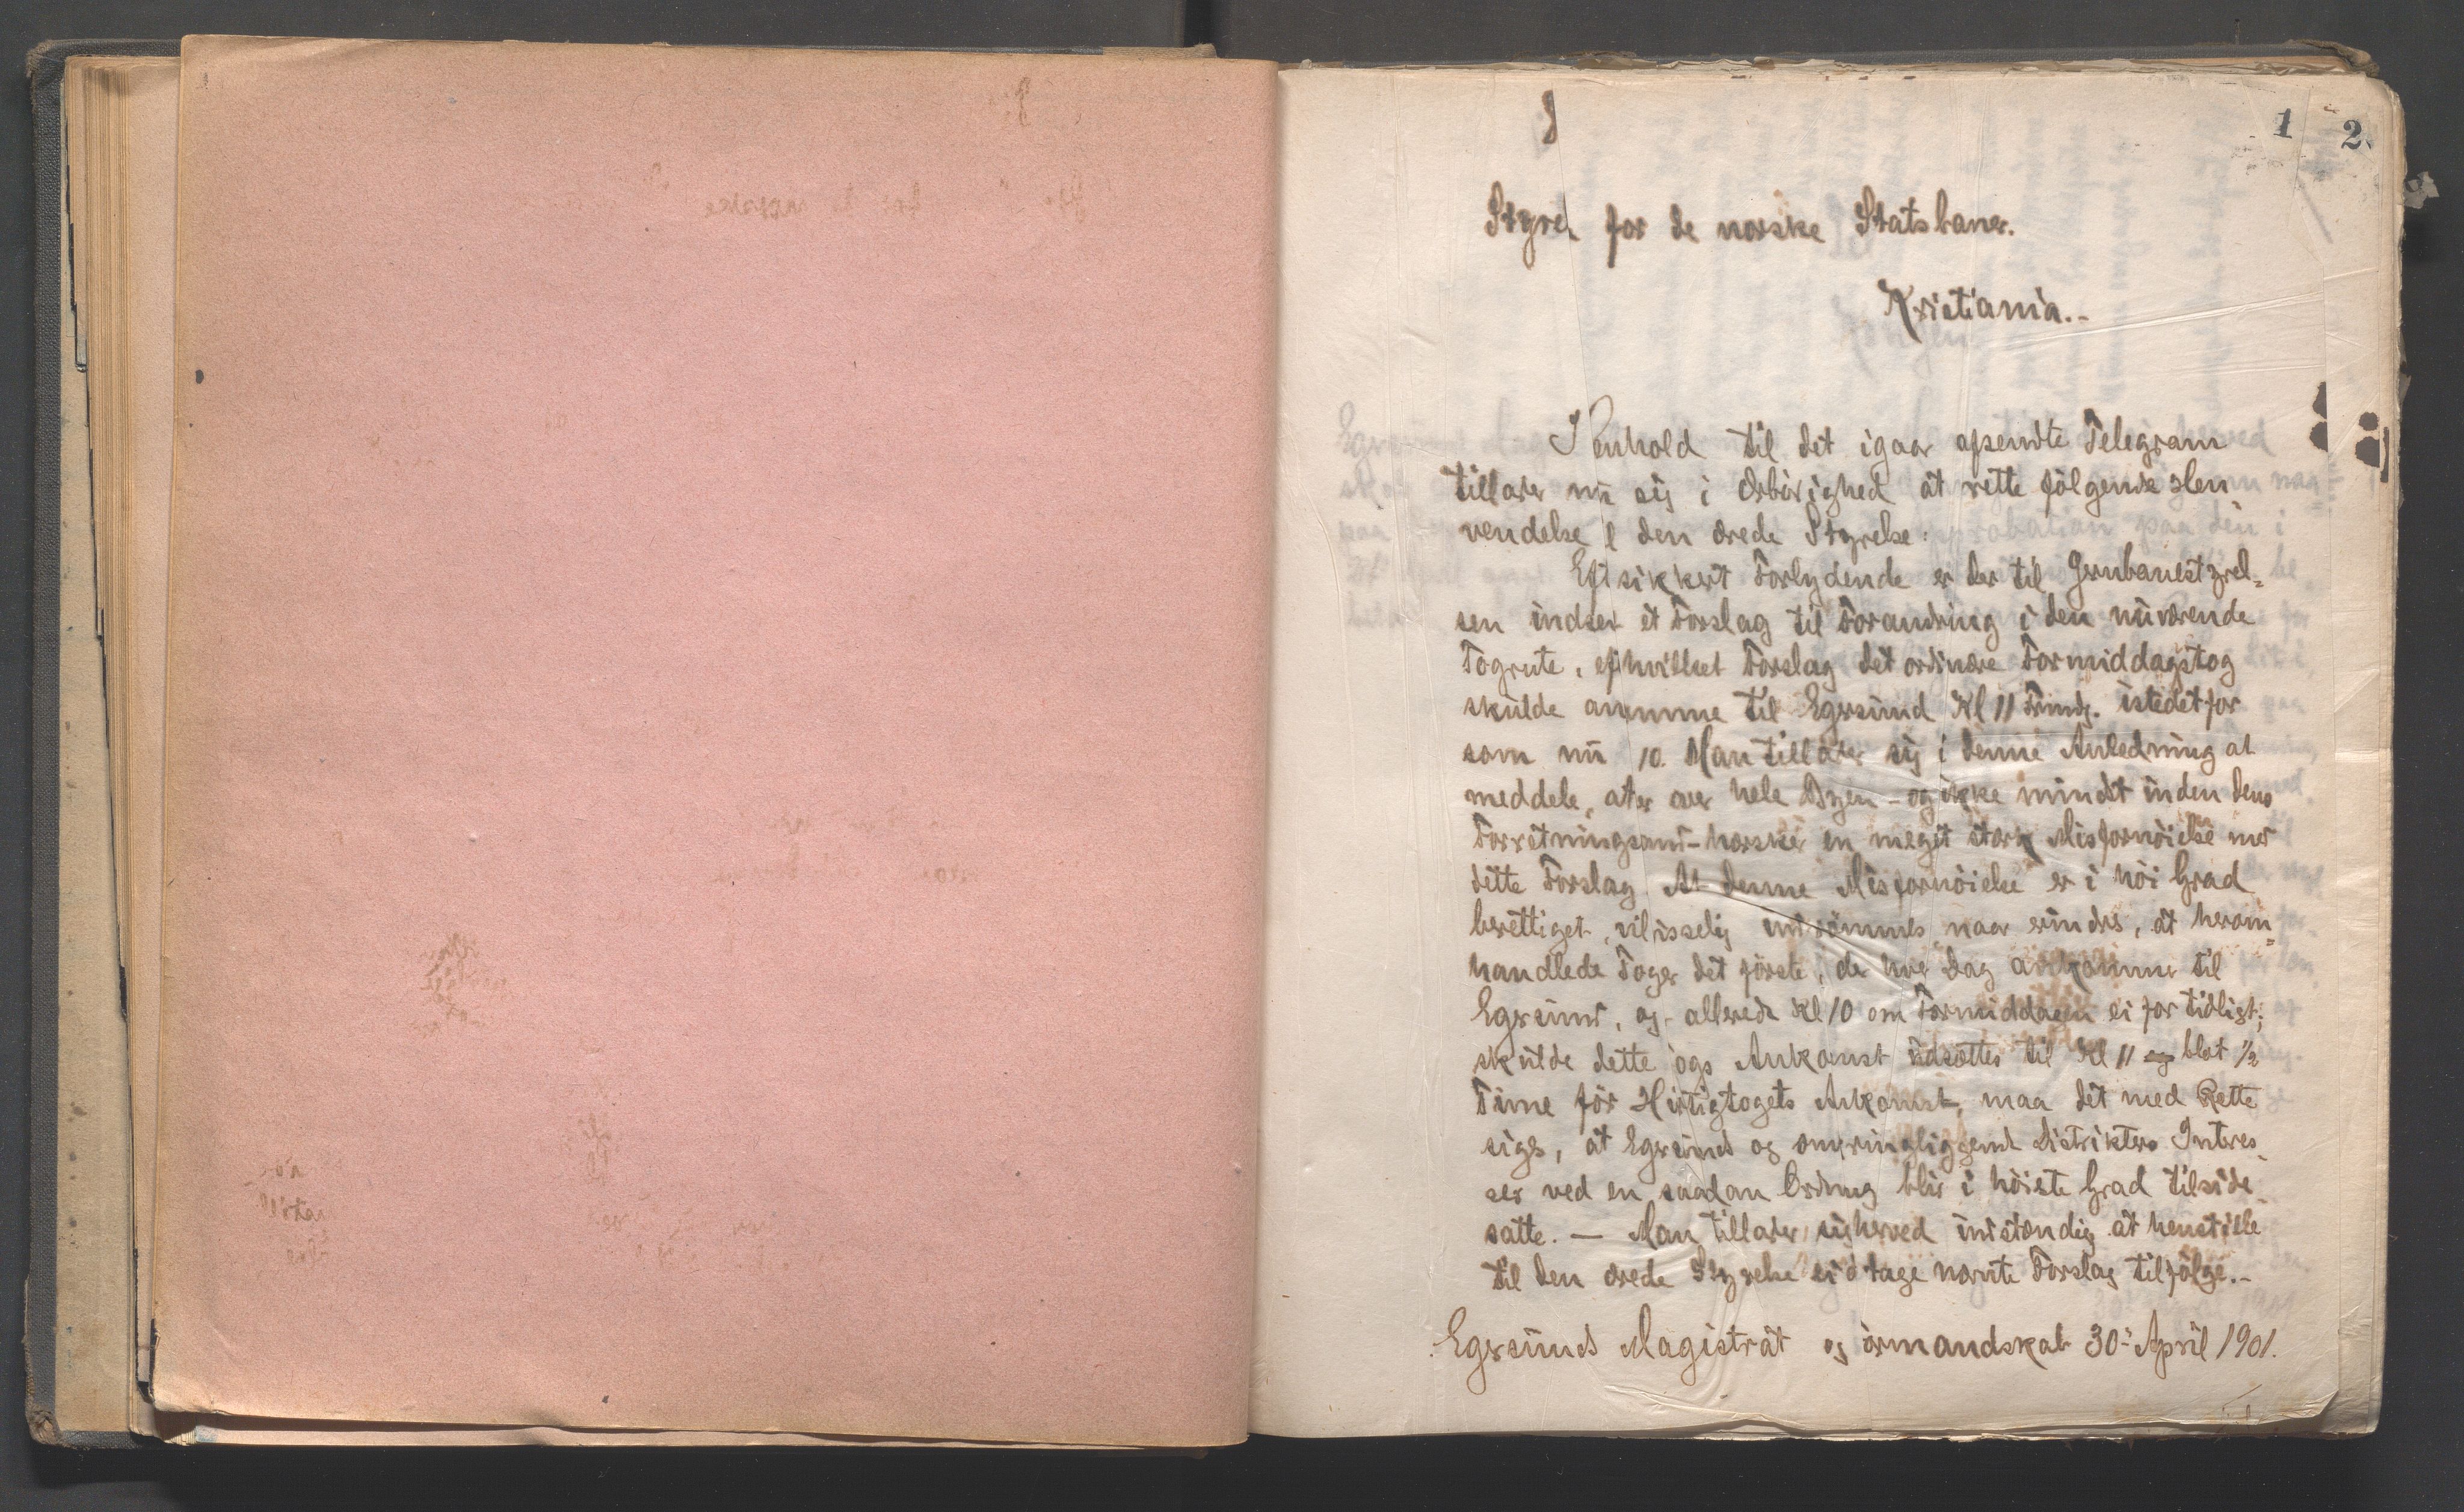 1 2
Styre for de norske Statsbaner.
Kristiania.-
I enhold til det igaar afsendte Telegram
tillater nu sig i Ærbørighed at rette følgende Hen
vendelse l den ærede Styrelse:
Eft sikkert Forlydende er der til Jernbanestyrel=
sen indsen et Forslag til Forandring i den nuværende
Togrute, ef hvilket Forslag det ordinære Formiddagstog
skulde ankomme til Egersund Kl 11 Frmdg. istedetfor
som nu 10. Man tillater sig i denne Anledning at
meddele, at er over hele Byen - og ikke mindst inden dens
Forretningsand - hersker en meget stærk Misfornøielse med
dette Forslag. At denne Misfornøielse er i høi Grad
berettiget, vil isselig indrømmes naar erindres, at herom=
handlede Toger det første, der hver Dag ankommer til
Egersund, og allerede Kl 10 om Formiddagen ei for tidligt;
skulde dette ogs Ankomst udsættes til Kl 11 og blot 1/2
Time før Hurtigtogets Ankomst, maa det med Rette
siges, at Egersund og omkringliggend Distrikters Interes
ser ved en saadan Ordning blir i høieste Grad tilside
satte. — Man tillater sig herved indstændig at henstille
til den ærede Styrelse ei at tage nævnte Forslag tilfølge.-
Egersunds Magistrat og ormandskab 30te April 1901.